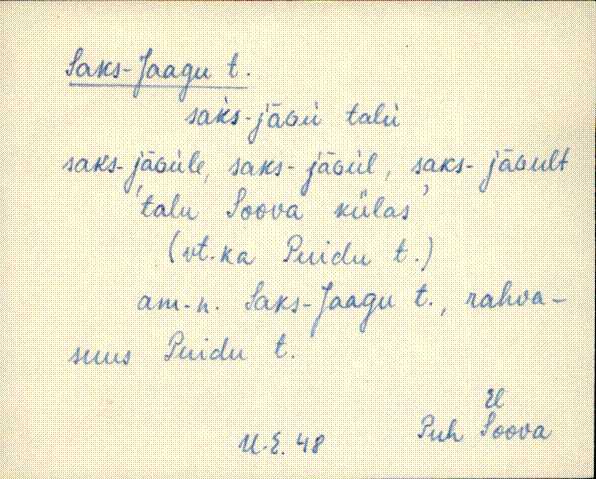 Saks-Jaagu t.
saks-jāɢu talu
saks-jāɢule, saks-jāɢul, saks-jāɢult
'talu Soova külas'
(vt. ka Puidu t.)
am-n. Saks-Jaagu t., rahva-
suus Puidu t.
El
U.E. 48 Puh Soova